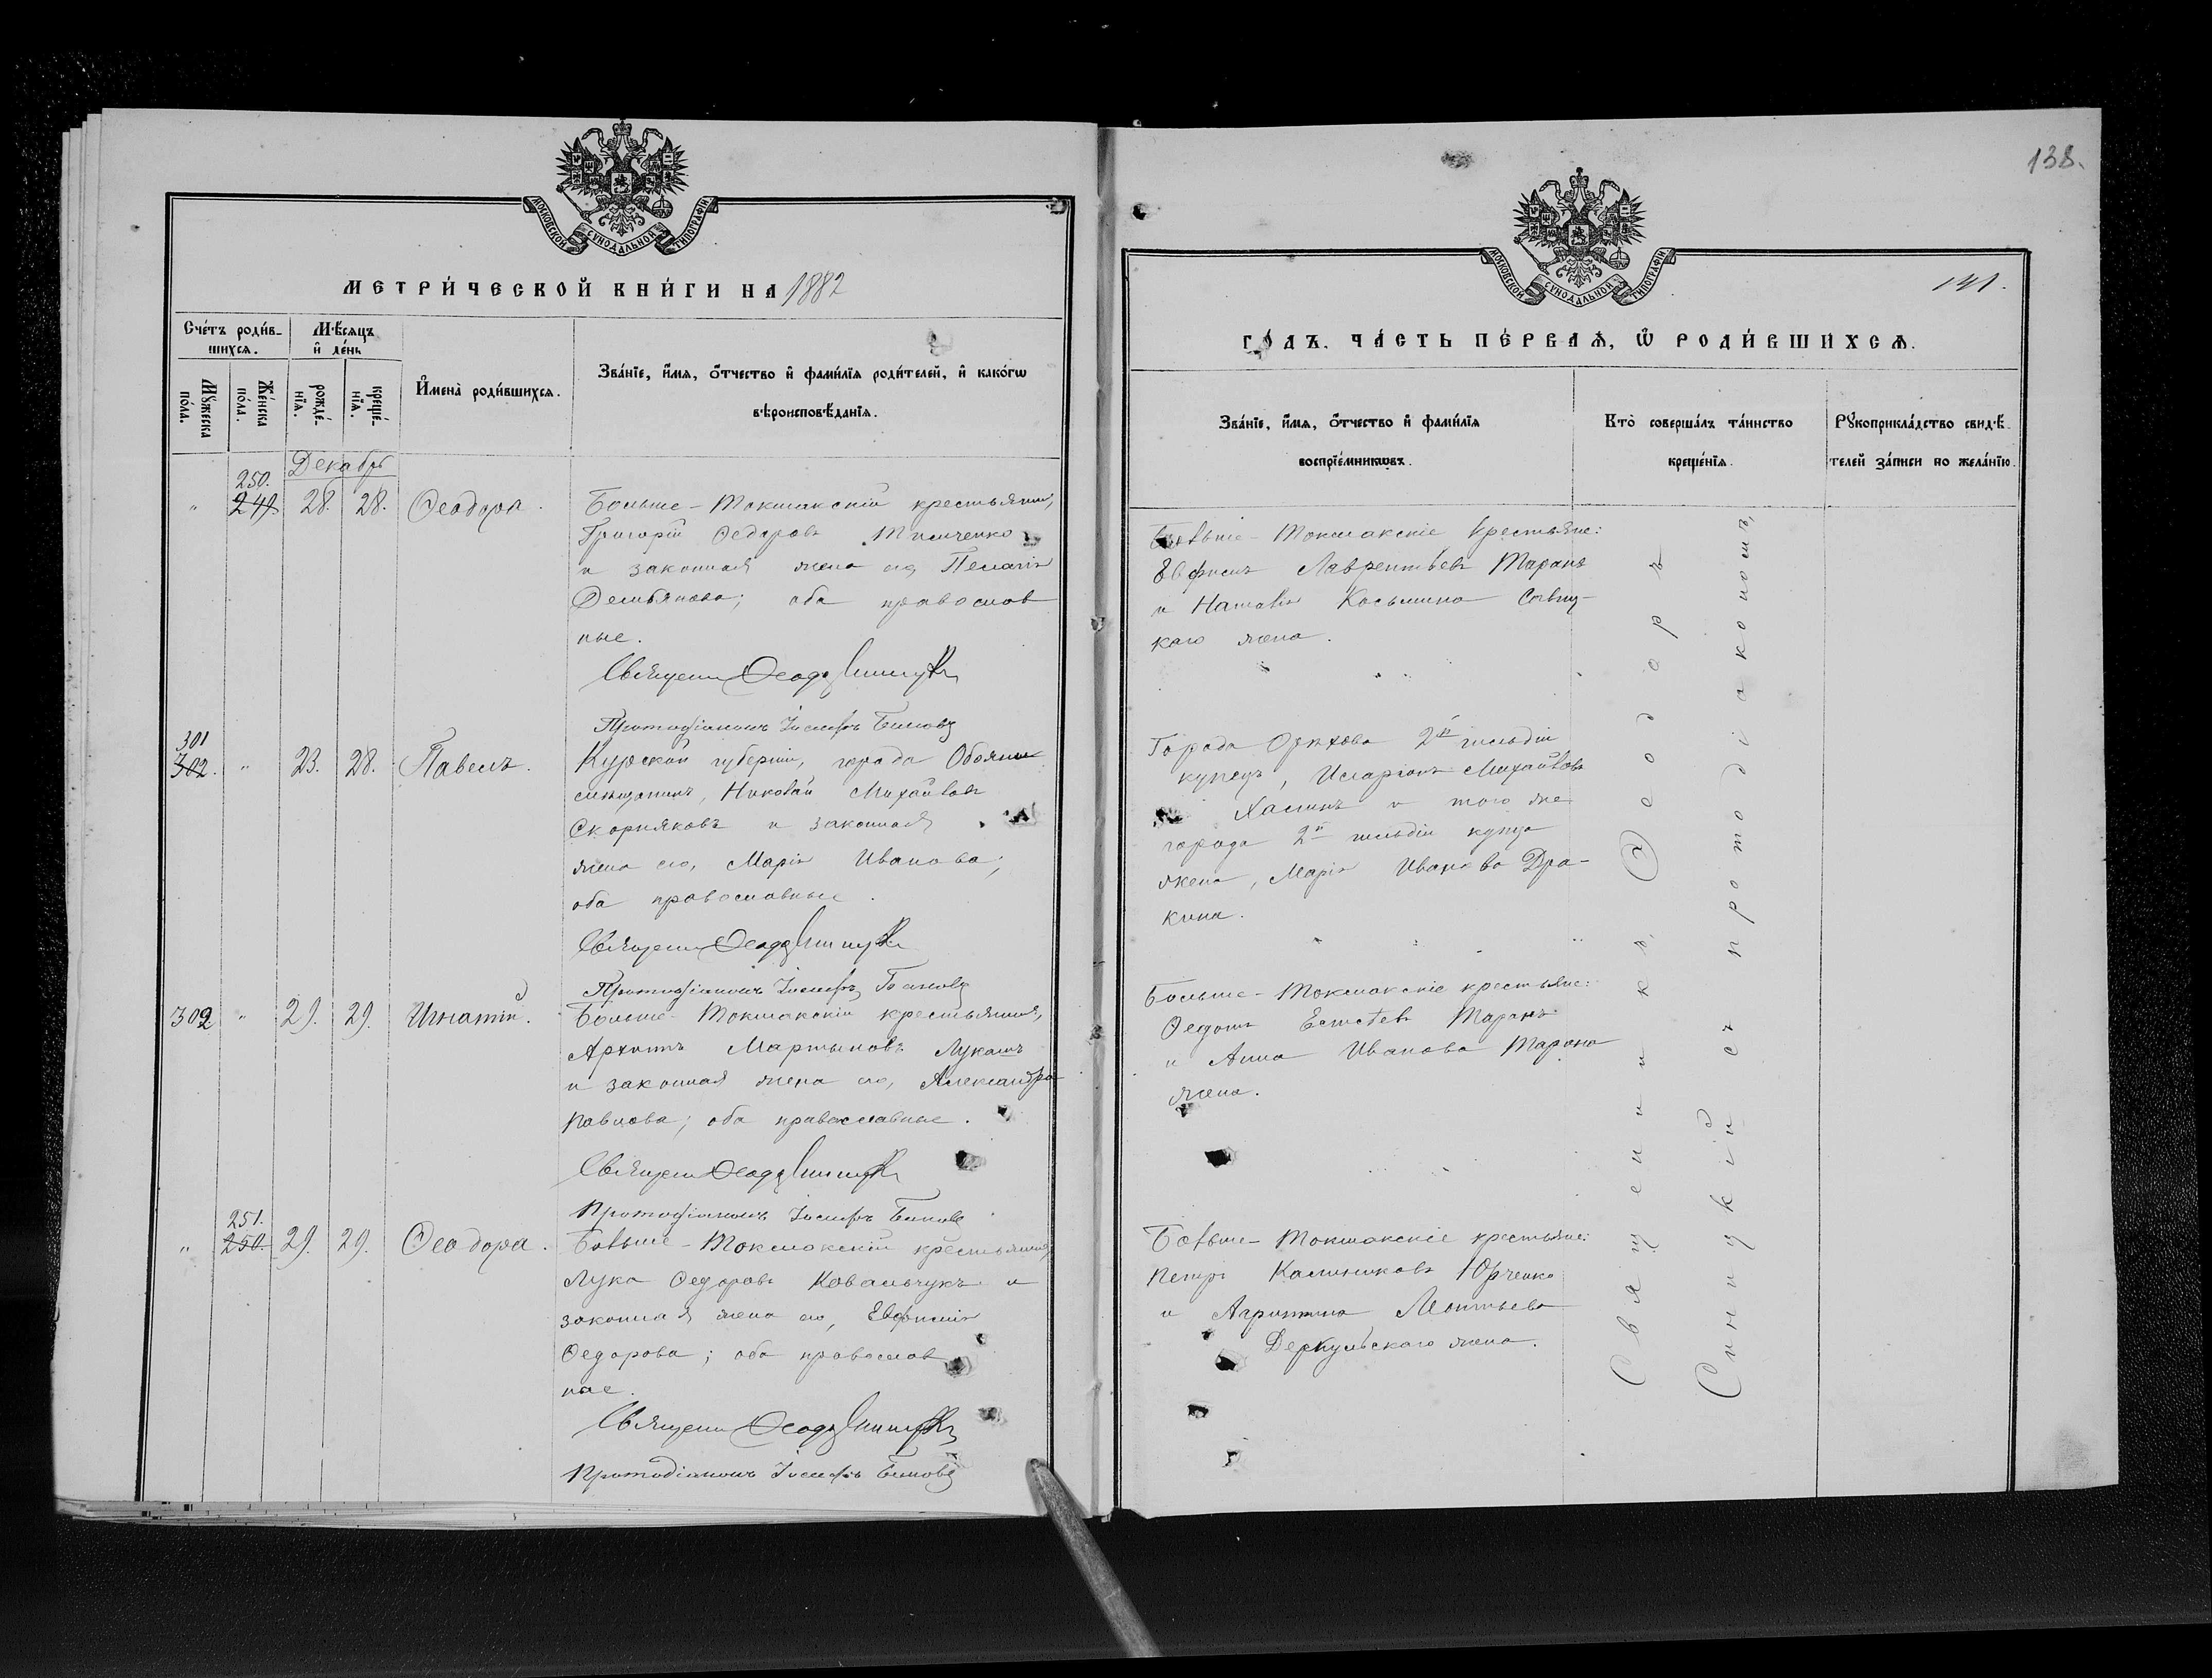 138.
МОСКОВСКОЙ СѴНОДАЛЬНОЙ ТИПОГРАФІИ
МЕТРИ́ЧЕСКОЙ КНИ́ГИ НА 1882
Сче́тъ роди́в-
шихся.
Мѣ́сяцъ
и҆ де́нь
Мꙋ́жеска
по́ла.
Же́нска
по́ла.
рожде́-
нїѧ.
креще́-
нїѧ.
И҆мена̀ роди́вшихсѧ.
Зва́нїе, и҆́мѧ, ѻ҆́тчество и҆ фами́лїѧ роди́телей, и҆ како́гѡ
вѣроисповѣ́данїѧ.
Декабрь
250.
" 249. 28. 28. Ѳеодора.
Больше-Токмакскій крестьянинъ,
Григорій Ѳедоровъ
и законная жена его, Пелагія
Демьянова; обѣ православ
ные.
Священн Ѳеодо Синицкій
Протодіаконъ Іосифъ
301
302. " 23. 28. Павелъ.
Курской губерніи, города Обояни
мѣщанинъ, Николай Михайловъ
Скорняковъ и законная
жена его, Марія Иванова;
оба православные.
Священн Ѳеодо Синицкій
Протодіаконъ Іосифъ
302 " 29. 29. Игнатій.
Больше-Токмакскій крестьянинъ,
Архипъ Мартыновъ Лукашъ
и законная жена его, Александра
Павлова; оба православные.
Священн Ѳеодо Синицкій
Протодіаконъ Іосифъ
251.
" 250. 29. 29. Ѳеодора.
Больше-Токмакскій крестьянинъ,
Лука Ѳедоровъ Ковальчукъ и
законная жена его, Евфимія
Ѳедорова; оба православ
ные.
Священн Ѳеодо Синицкій
Протодіаконъ Іосифъ
МОСКОВСКОЙ СѴНОДАЛЬНОЙ ТИПОГРАФІИ
141.
ГО́ДЪ. ЧА́СТЬ ПЕ́РВАѦ, Ѡ҆ РОДИ́ВШИХСѦ.
Зва́нїе, и҆́мѧ, ѻ҆́тчество и҆ фами́лїѧ
воспрїе́мникѡвъ.
Кто̀ соверша́лъ та́инство
креще́нїѧ.
Рꙋкоприкла́дство свидѣ́-
телей за́писи по жела́нїю.
Больше-Токмакскіе крестьяне:
Евфимъ Лаврентьевъ Таранъ
и Наталія Косьмина Савиц-
каго жена.
Города Орѣхова 2й гильдіи
купецъ, Иларіонъ Михайловъ
Халинъ и того же
города 2й гильдіи купца
жена, Марія Иванова Дра-
кина.
Больше-Токмакскіе крестьяне:
Ѳедотъ Таранъ
и Анна Иванова Тарана
жена.
Больше-Токмакскіе крестьяне:
Петръ Калиниковъ Юрченко
и Агрипина Леонтьева
Деркульскаго жена.
Священникъ, Ѳеодоръ
Синицкій съ протодіакономъ,